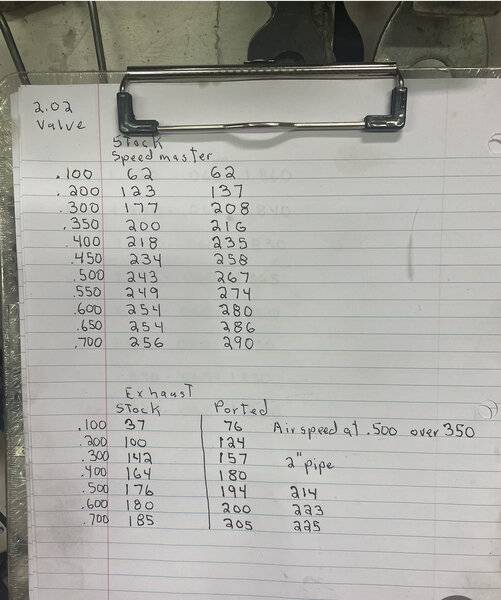 2.02
Valve
Stock
Speedmaster
.100 62 62
.200 123 137
.300 177 208
.350 200 216
.400 218 235
.450 234 258
.500 243 267
.550 249 274
.600 254 280
.650 254 286
.700 256 290
Exhaust
Stock Ported
.100 37 76 Airspeed at .500 over 350
.200 100 124
.300 142 157 2" pipe
.400 164 180
.500 176 194 214
.600 180 200 223
.700 185 205 225